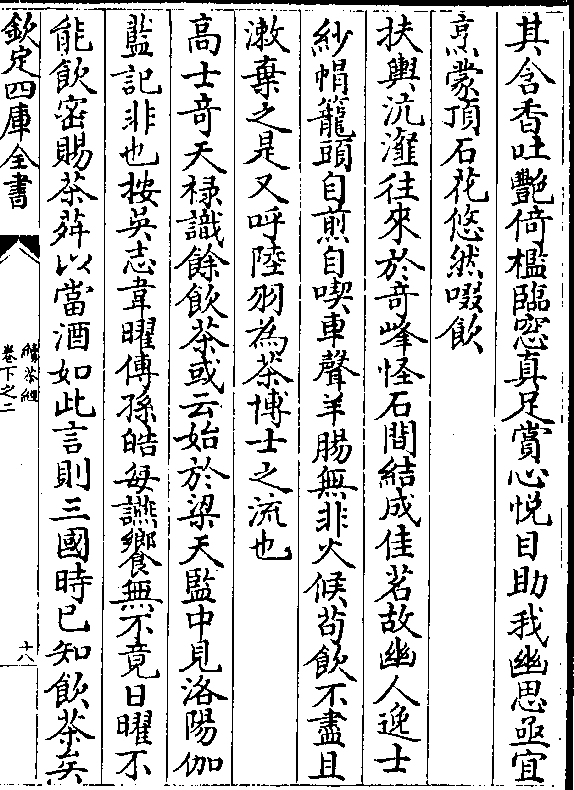 其含香吐艷倚檻臨窓真足賞心悅目助我幽思亟宜
烹蒙頂石花悠然啜飲
扶輿沆瀣往來於竒峰怪石間結成佳茗故幽人逸士
紗帽籠頭自煎自喫車聲羊腸無非火候茍飲不盡且
漱棄之是又呼陸羽為茶博士之流也
高士竒天祿識餘飲茶或云始於梁天監中見洛陽伽
藍記非也按吳志韋曜傳孫皓每讌饗無不竟日曜不
能飲密賜茶荈以當酒如此言則三國時已知飲茶矣
欽定四庫全書
續茶經
卷下之二
十八